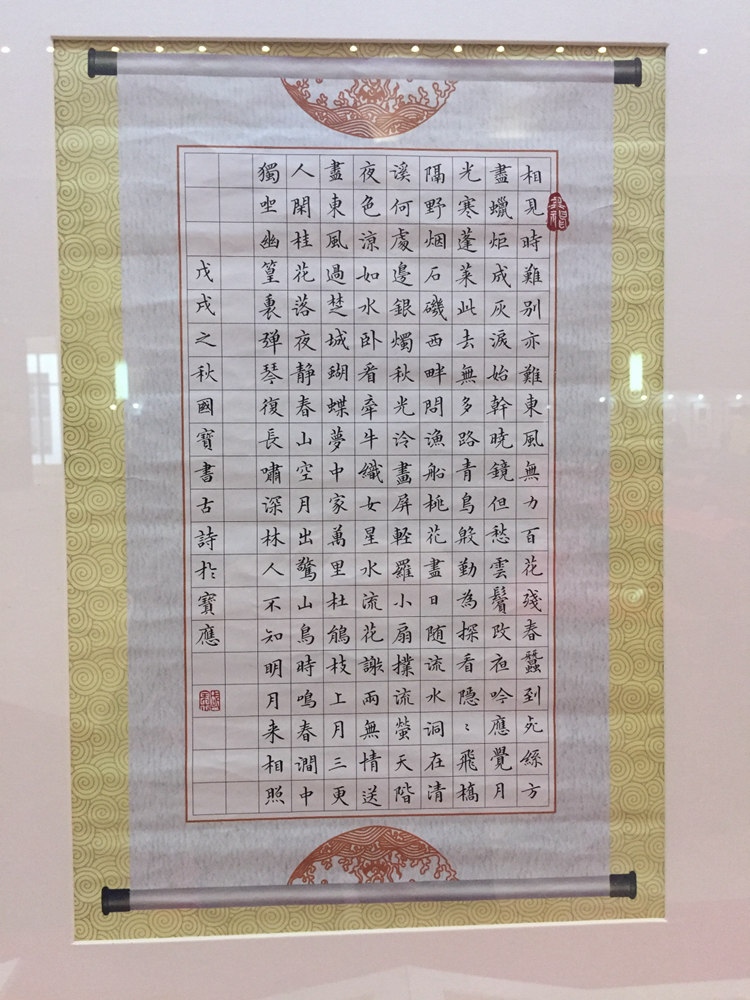 相見時難别亦難東風無力百花殘春蠶到死絲方
盡蠟炬成灰淚始幹曉鏡但愁雲鬢改夜吟應覺月
光寒蓬萊此去無多路青鳥殷勤為探看隱〻飛橋
隔野烟石磯西畔問漁船桃花盡日随流水洞在清
溪何處邊銀燭秋光冷畫屏軽羅小扇撲流螢天階
夜色涼如水卧看牽牛織女星水流花謝兩無情送
盡東風過楚城蝴蝶夢中家萬里杜鵑枝上月三更
人閑桂花落夜静春山空月出驚山鳥時鳴春澗中
獨坐幽篁裏弹琴復長嘯深林人不知明月来相照
戊戌之秋國寶書古詩於寶應